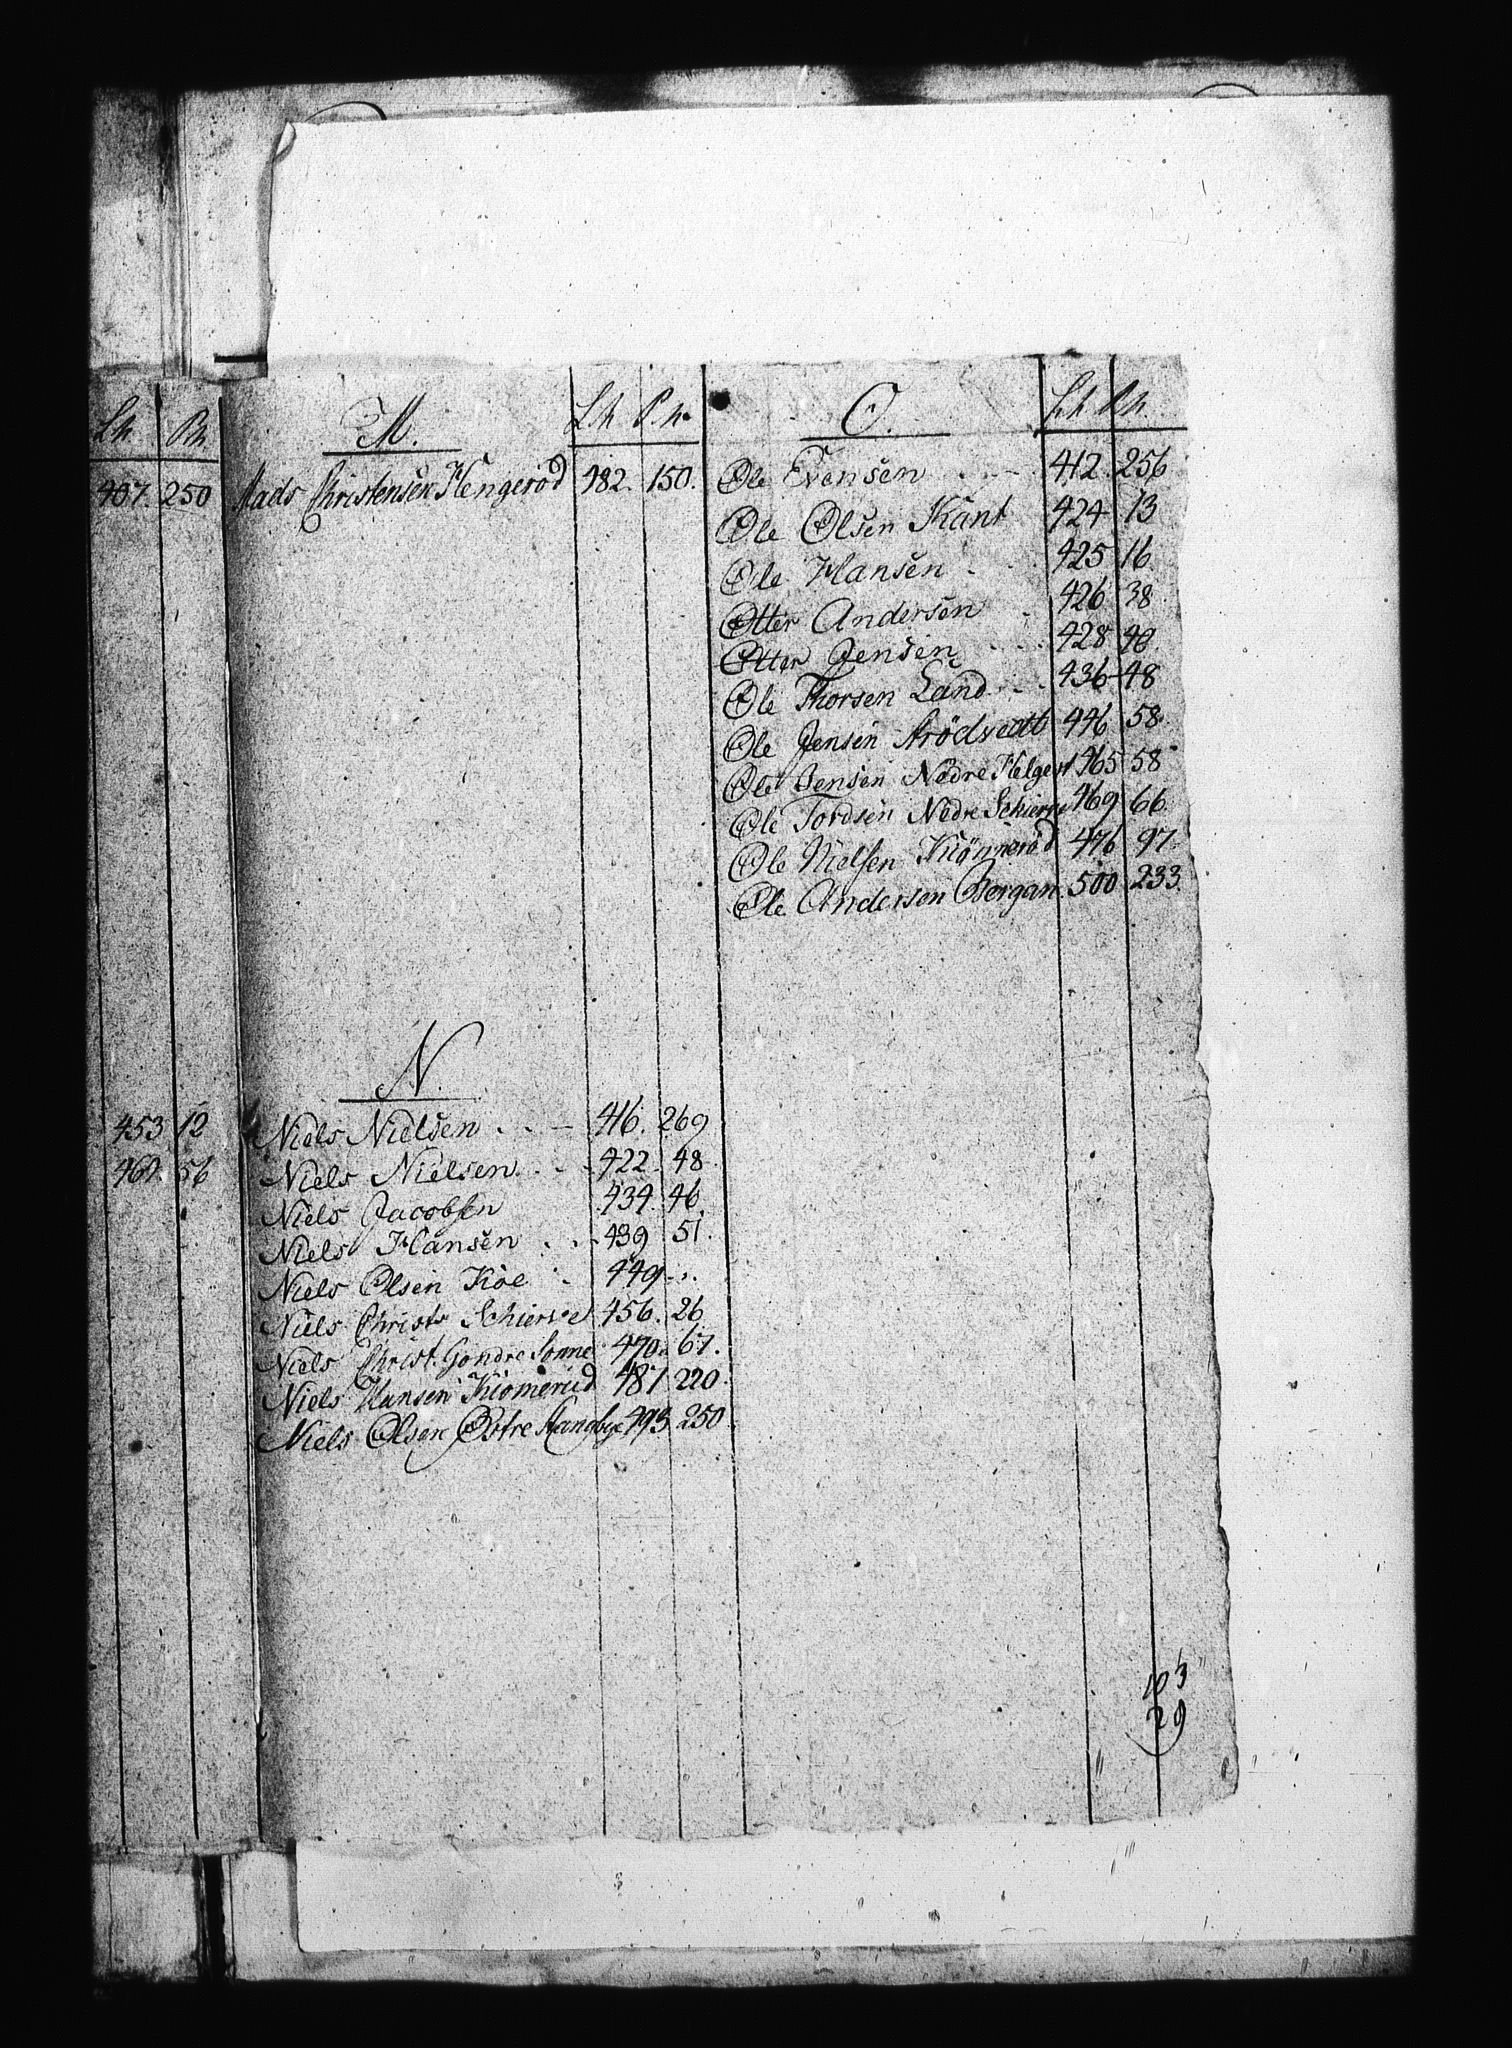 Lh Ph
407. 250
453 12
467. 56
M. Lh Ph.
Mads Christensen Hengeröd 482. 150.
N.
Niels Nielsen . . - 416. 269
Niels Nielsen . . . 422. 48
Niels Jacobsen 434. 46.
Niels Hansen . . . 439 51.
Niels Olsen Köe . . 449 - . .
Niels Christs Schierve 456. 26
Niels Christ. Gondre Sonne 470. 67.
Niels Hansen Kiömeröd 487 220.
Niels Olsen Östre Stangbye 493 250
O. Lh Ph.
Ole Evensen . . . 412. 256
Ole Olsen Kant 424 13
Ole Hansen . . 425 16
Otter Andersen . 426 38
Otter Jensen . . . 428 40.
Ole Thorsen Land . . . 436 48
Ole Jensen Arödvedt 446 58
Ole Jensen Nedre Helgest 465 58
Ole Tordsen Nedre Schierve 469 66
Ole Nielsen Kiönneröd 476 97.
Ole Andersen Borgan. 500 233.
103
29